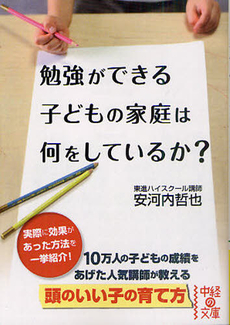 勉強ができる
子どもの家庭は
何をしているか?
東進ハイスクール講師
安河内哲也
実際に効果が
あった方法を
一挙紹介!
10万人の子どもの成績を
あげた人気講師が教える
頭のいい子の育て方
中経
の
文庫